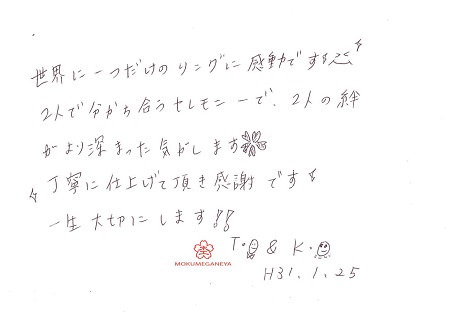 世界に一つだけのリングに感動です
2人で分かち合うセレモニーで、2人の絆
がより深まった気がします
丁寧に仕上げて頂き感謝です
一生大切にします!!
T. & K.
MOKUMEGANEYA
H31.1.25